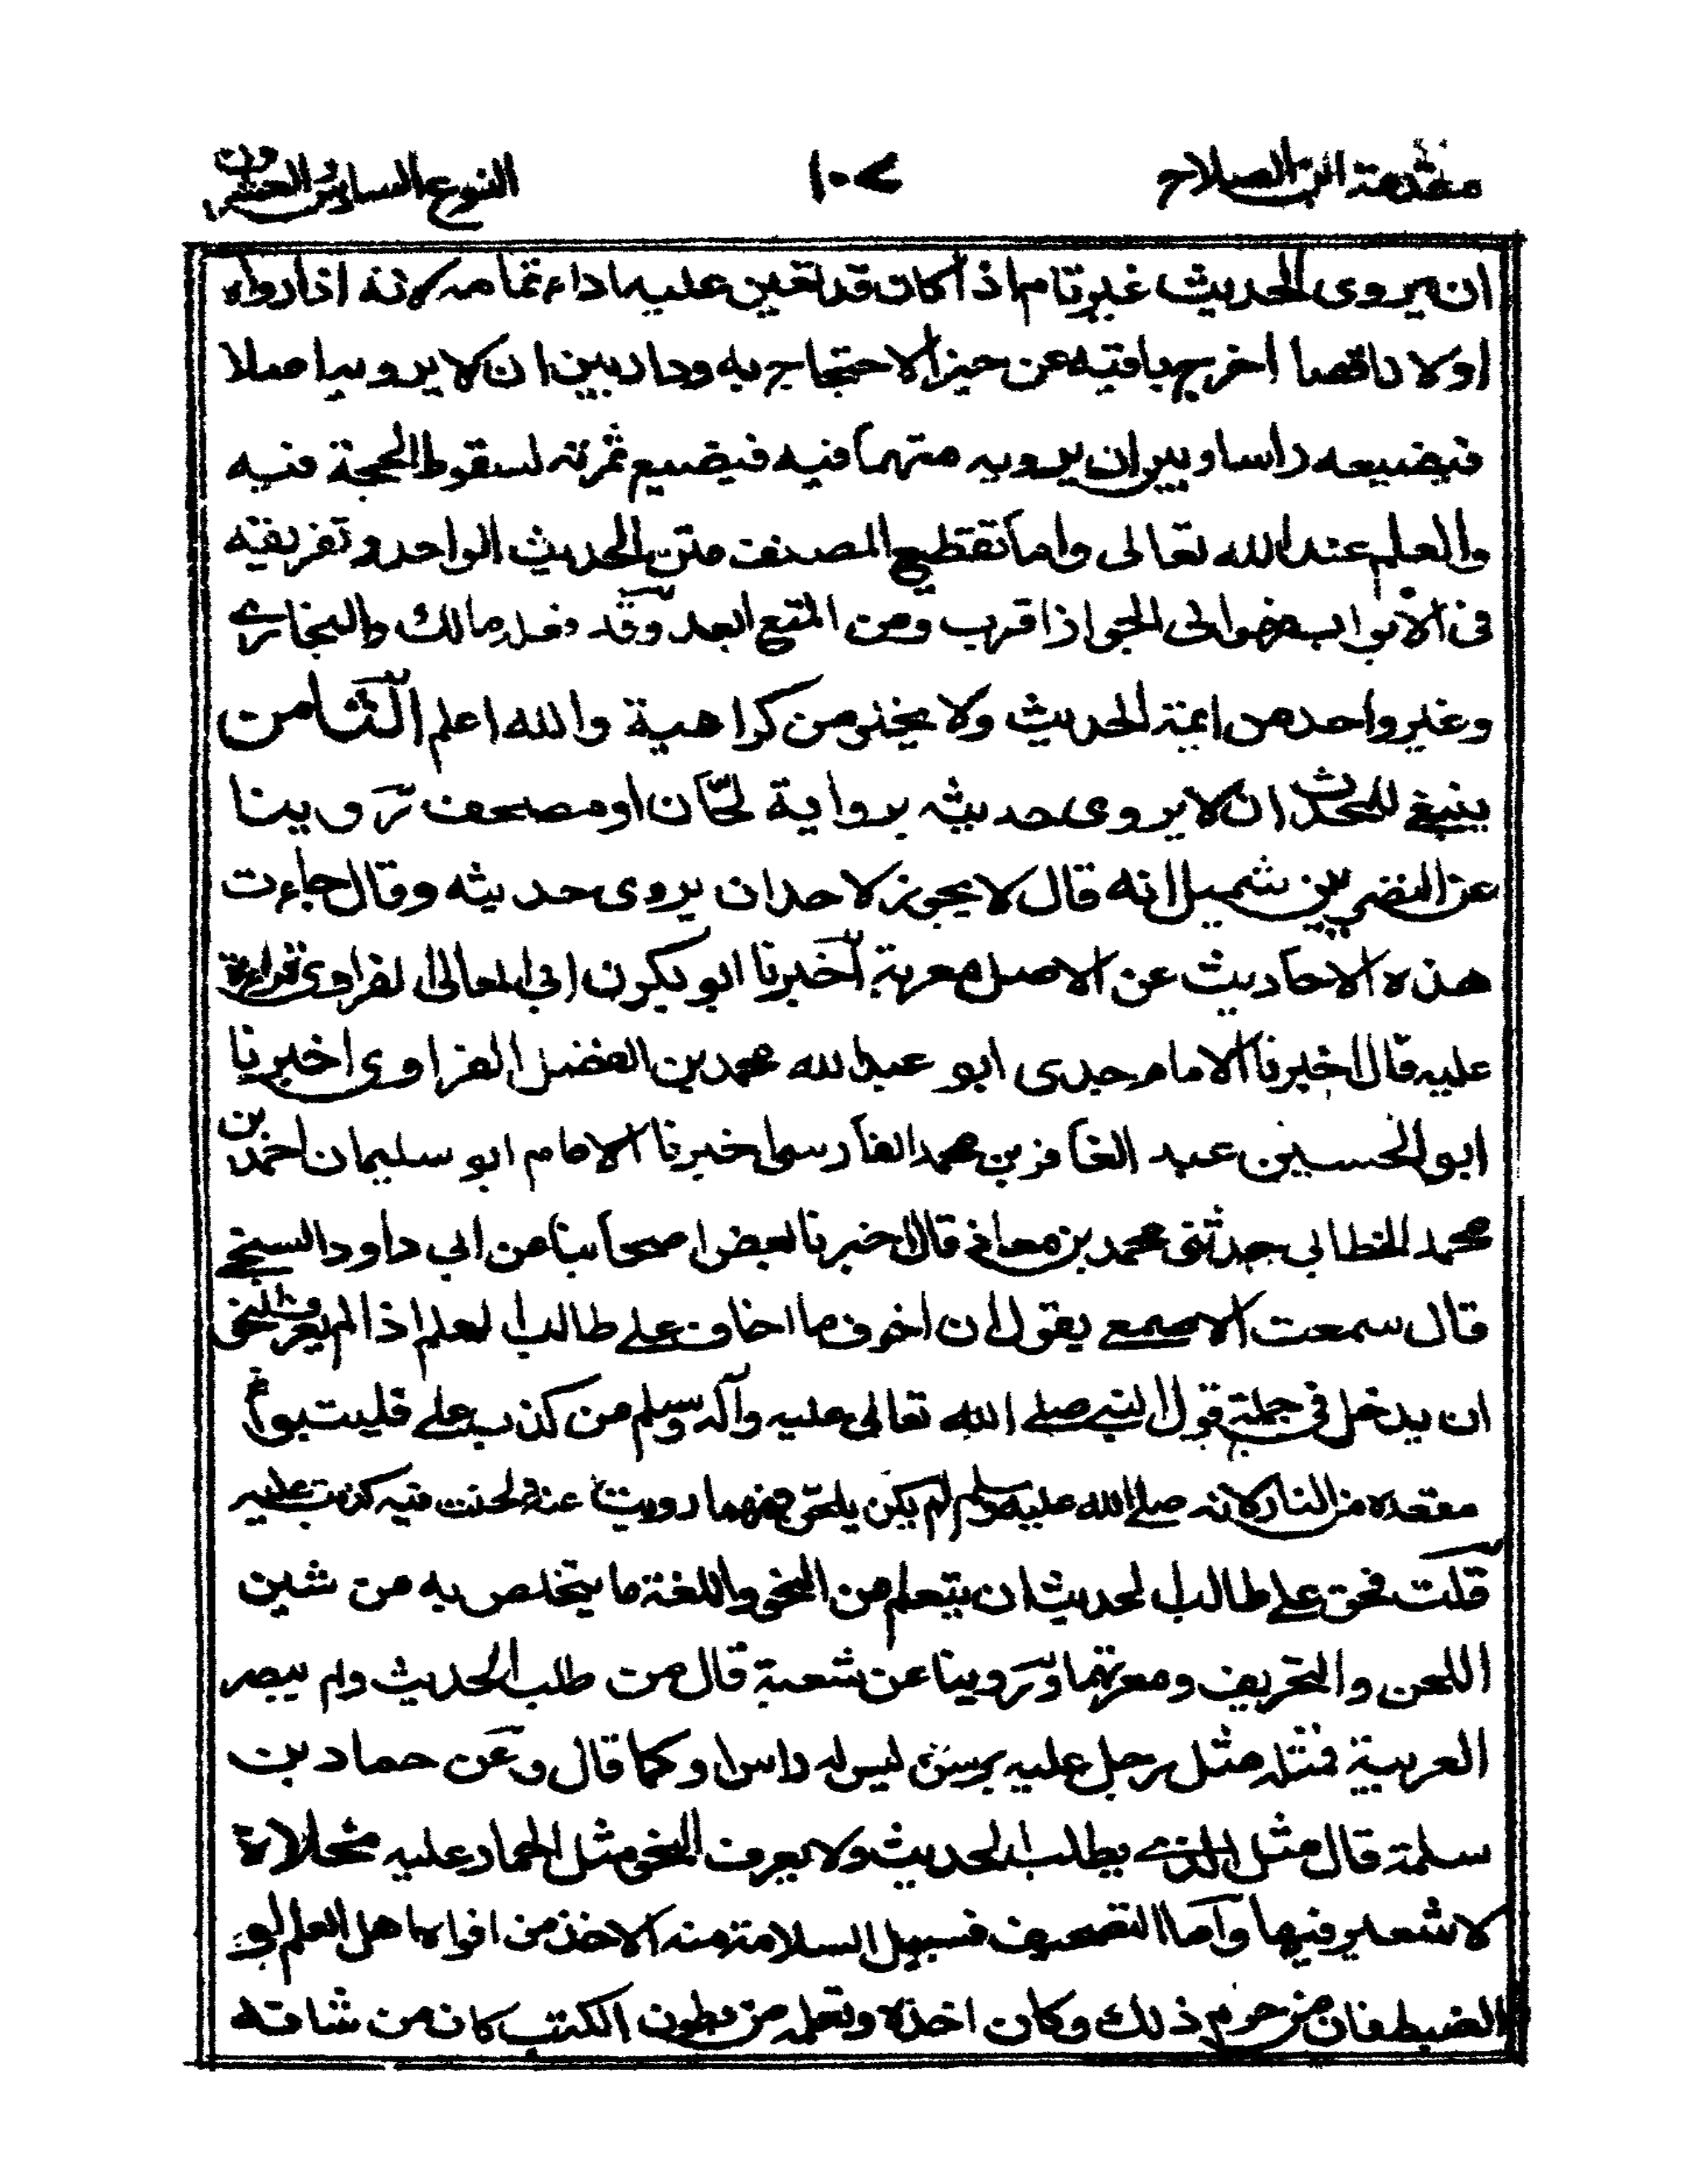 مقدمة ابن الصلاح ١٠٧ النوع السادس والعشرون
ان يروى الحديث غير تام اذا كان قد تعين عليه اداء تمامه لانه اذا رواه
اولا ناقصا اخرج باقيه عن حيز الاحتجاج به ودار بين ان لا يرويه اصلا
فيضيعه راسا وبين ان يرويه متهما فيه فيضيع ثمرته لسقوط الحجة فيه
والعلم عند الله تعالى واما تقطيع المصنف متن الحديث الواحد وتفريقه
فى الابواب فهو الى الجواز اقرب ومن المنع ابعد وقد فعله مالك والبخارى
وغير واحد من ائمة الحديث ولا يخلو من كراهية والله اعلم الثامن
ينبغى للمحدث ان لا يروى حديثه برواية لحّان او مصحف روينا
عن النضر بن شميل انه قال لا يجوز لاحد ان يروى حديثه وقال جاءت
هذه الاحاديث عن الاصل معربة اخبرنا ابو بكر بن ابى المعالى الفراوى قراءة
عليه قال اخبرنا الامام جدى ابو عبد الله محمد بن الفضل الفراوى اخبرنا
ابو الحسين عبد الغافر بن محمد الفارسى اخبرنا الامام ابو سليمان احمد بن
محمد الخطابى حدثنى محمد بن معاذ قال اخبرنا بعض اصحابنا عن ابى داود السنجى
قال سمعت الاصمعى يقول ان اخوف ما اخاف على طالب العلم اذا لم يعرف النحو
ان يدخل فى جملة قول النبى صلى الله تعالى عليه وآله وسلم من كذب على فليتبوأ
مقعده من النار لانه صلى الله عليه وسلم لم يكن يلحن فمهما رويت عنه ولحنت فيه كذبت عليه
قلت فحق على طالب الحديث ان يتعلم من النحو واللغة ما يتخلص به من شين
اللحن والتحريف ومعرتهما روينا عن شعبة قال من طلب الحديث ولم يبصر
العربية فمثله مثل رجل عليه برنس ليس له راس او كما قال وعن حماد بن
سلمة قال مثل الذى يطلب الحديث ولا يعرف النحو مثل الحمار عليه مخلاة
لا شعير فيها واما التصحيف فسبيل السلامة منه الاخذ من افواه اهل العلم او
الضبط فان من حرم ذلك وكان اخذه وتعلمه من بطون الكتب كان من شانه